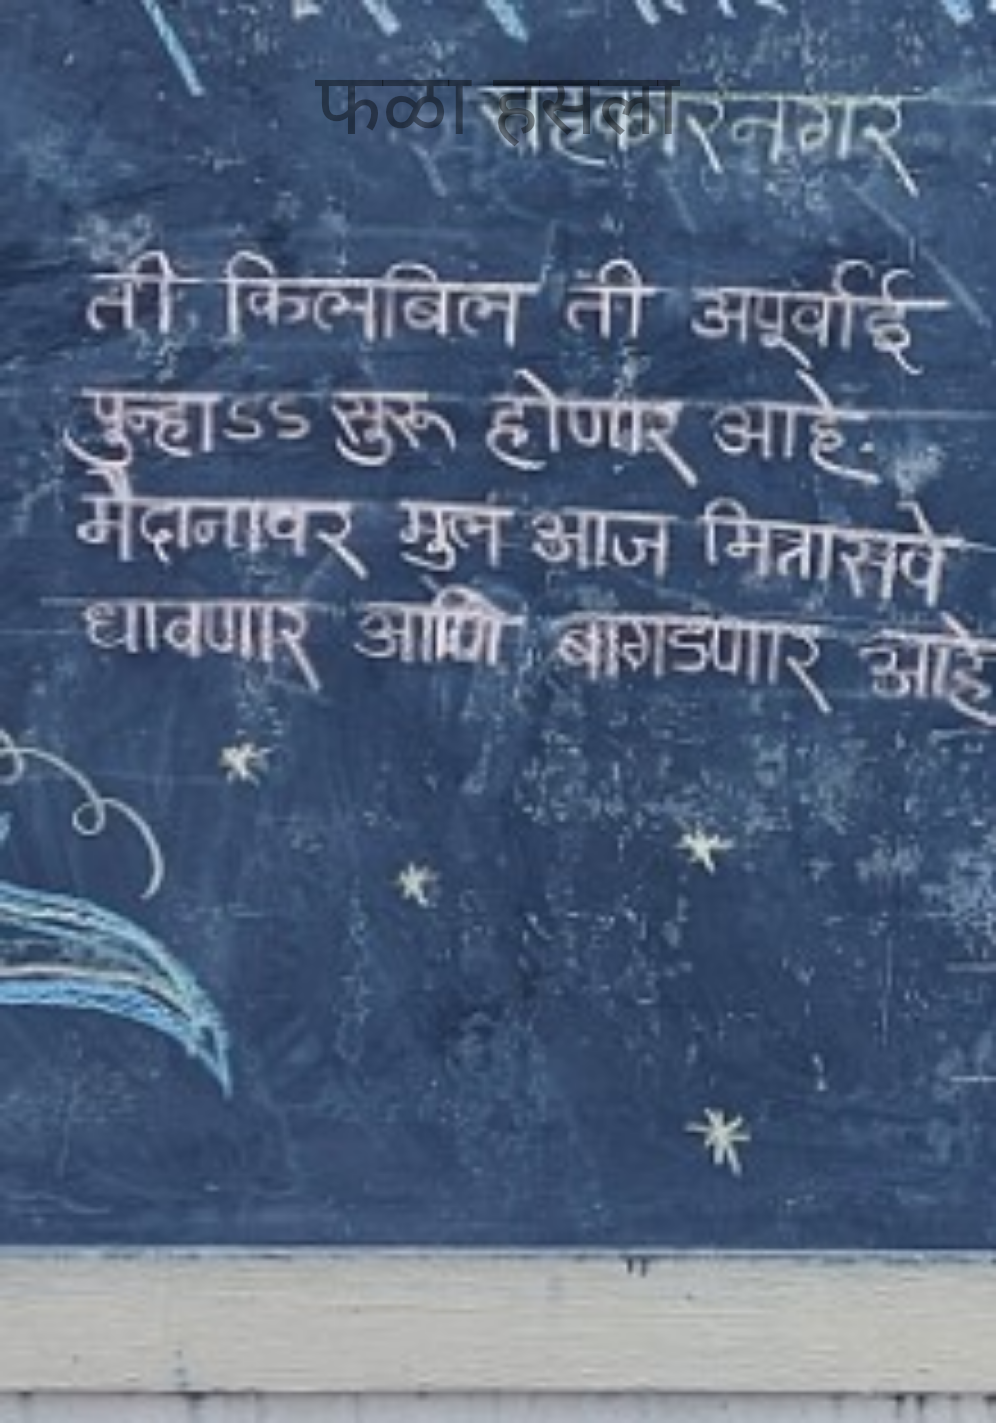 फळा हसला
सहकारनगर
ती किलबिल ती अपूर्वाई
पुन्हाऽऽ सुरू होणार आहे.
मैदानावर मुलं आज मित्रासवे
धावणार आणि बागडणार आहे